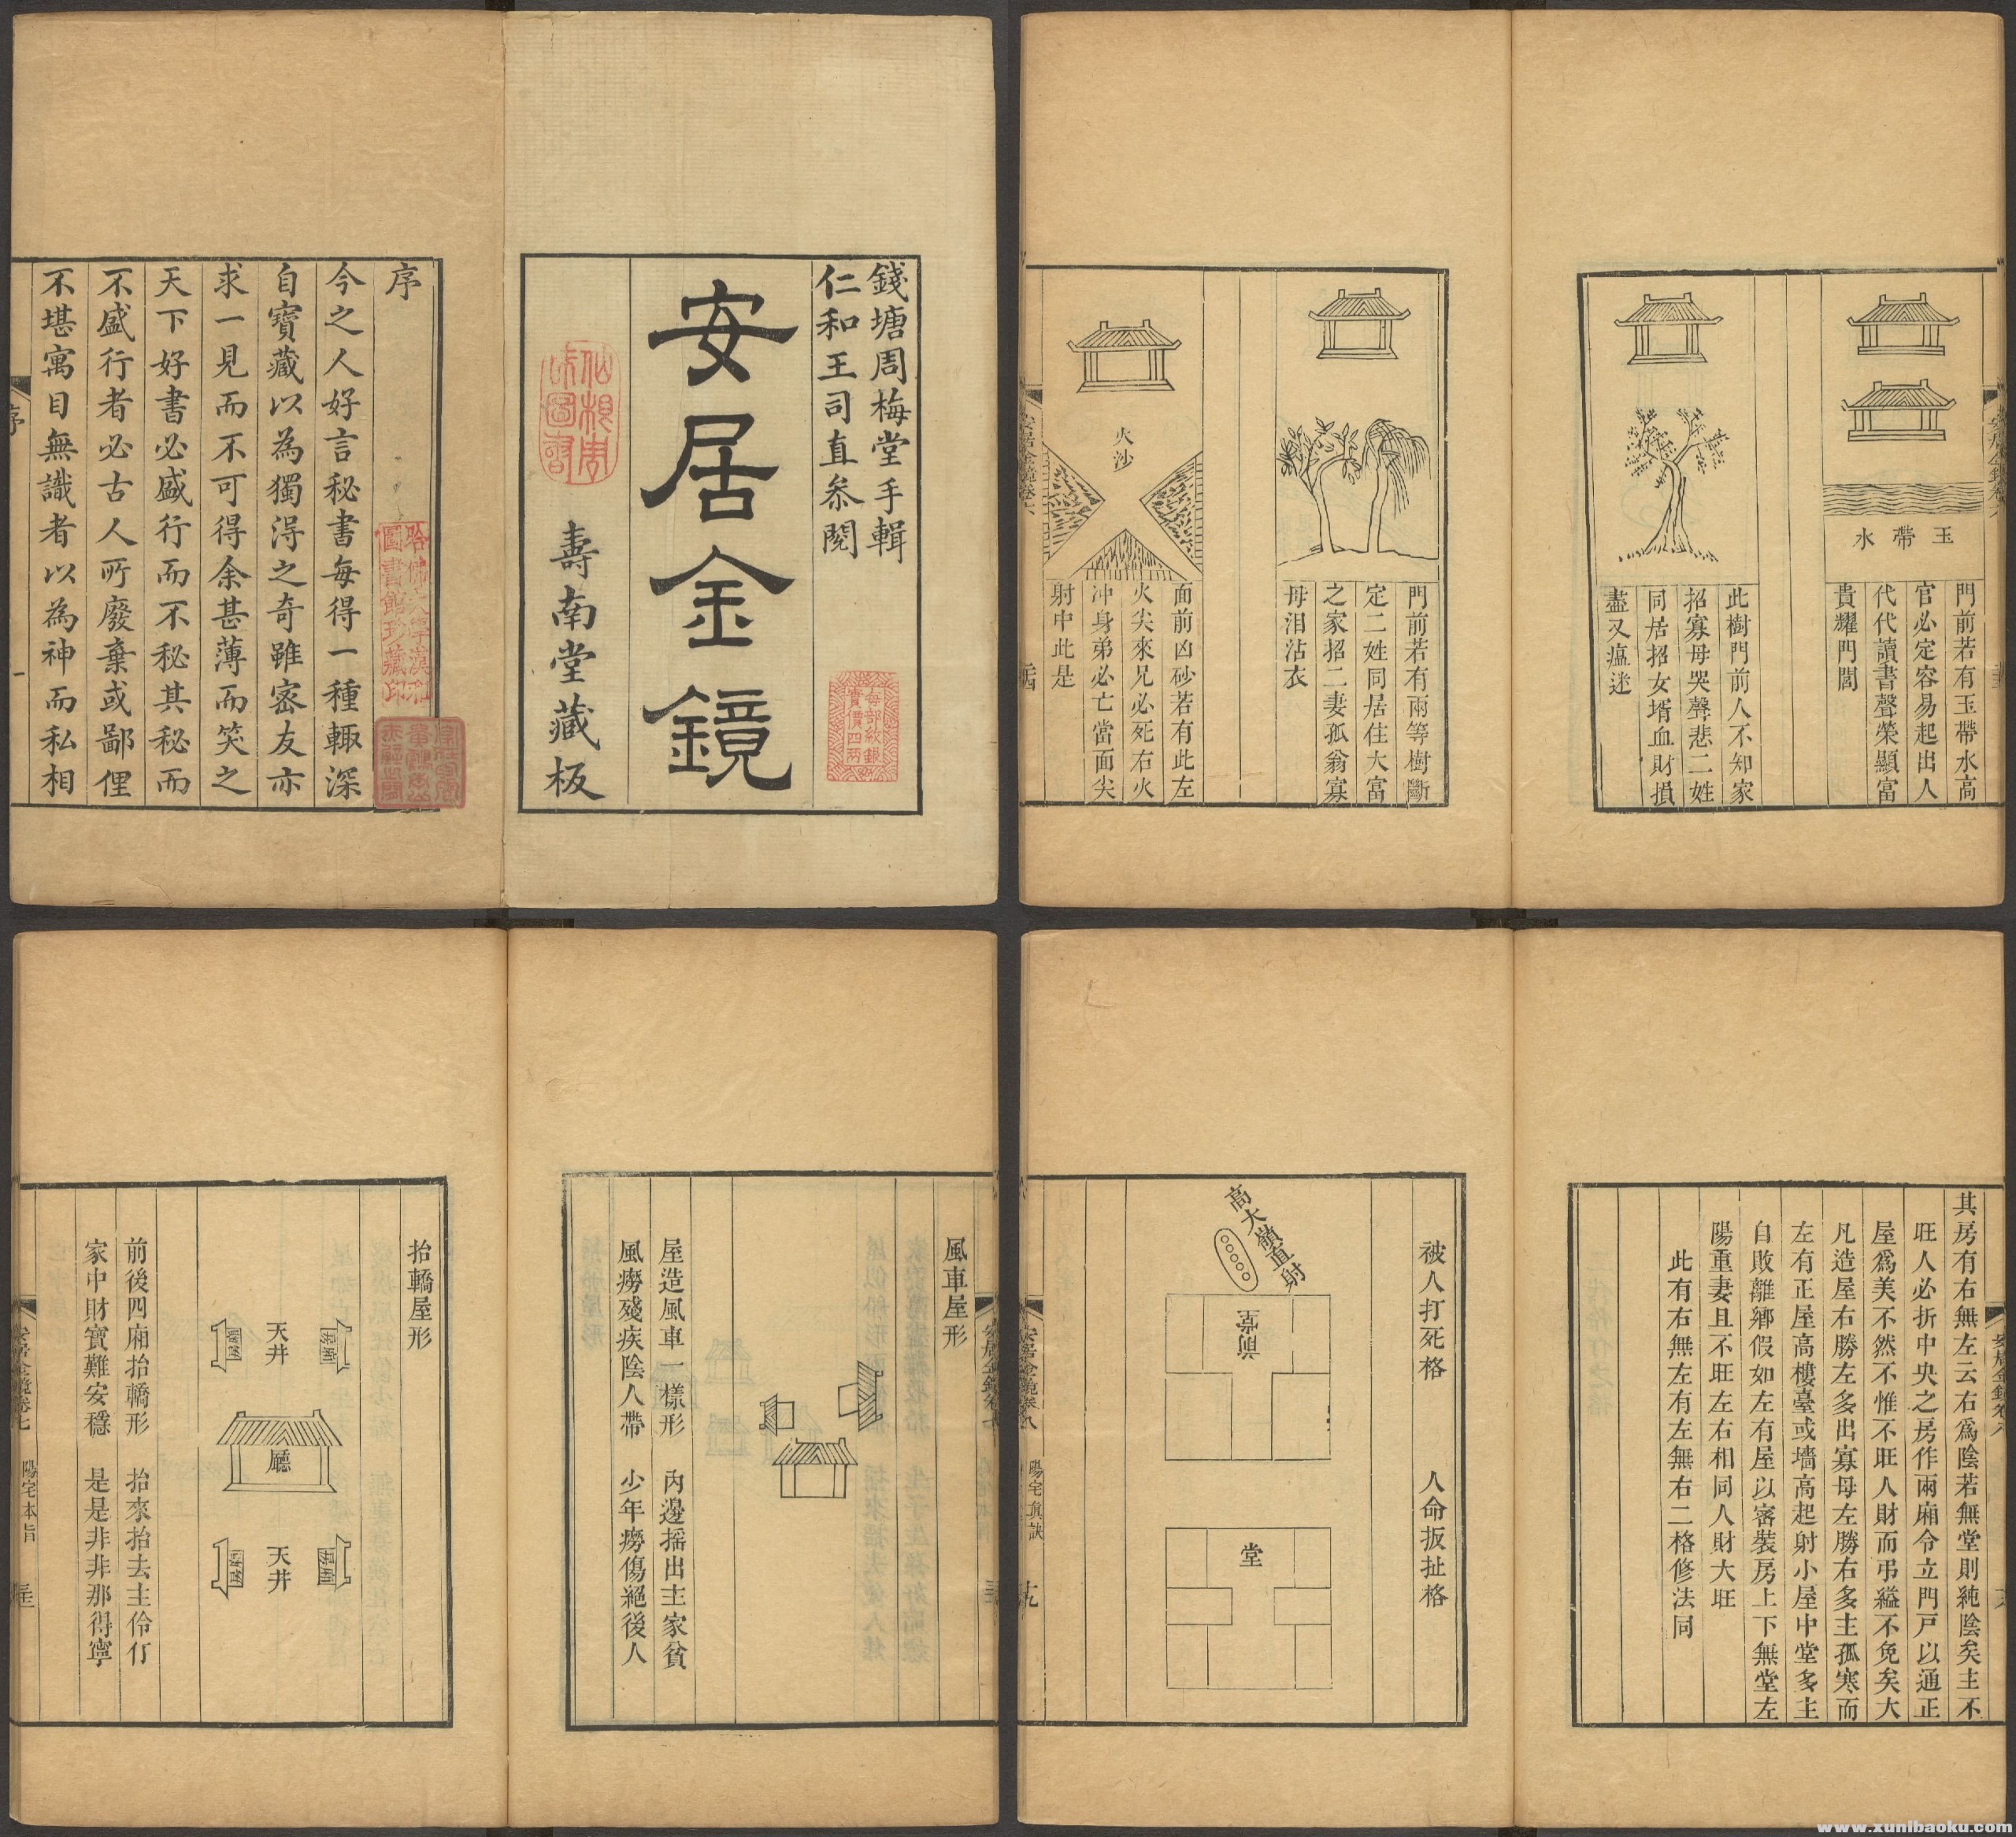 錢塘周梅堂手輯
仁和王司直叅閱
安居金鏡
壽南堂藏板
每部紋銀
實價四兩
序
今之人好言秘書每得一種輙深
自寶藏以為獨淂之奇雖密友亦
求一見而不可得余甚薄而笑之
天下好書必盛行而不秘其秘而
不盛行者必古人所廢棄或鄙俚
不堪寓目無識者以為神而私相
序
哈佛大學漢和
圖書館珍藏印
玉帶水
門前若有玉帶水高
官必定容易起出人
代代讀書聲榮顯富
貴耀門閭
此樹門前人不知家
招寡母哭聲悲二姓
同居招女壻血財損
盡又瘟迷
門前若有兩等樹斷
定二姓同居住大富
之家招二妻孤翁寡
母泪沾衣
火沙
面前凶砂若有此左
火尖來兄必死右火
冲身弟必亡當面尖
射中此是
安居金鏡卷六
風車屋形
屋造風車一樣形 內邊搖出主家貧
風癆殘疾陰人帶 少年癆傷絕後人
抬轎屋形
天井
廳
天井
前後四廂抬轎形 抬來抬去主伶仃
家中財寶難安穩 是是非非那得寧
安居金鏡卷七
陽宅本旨
其房有右無左云右爲陰若無堂則純陰矣主不
旺人必折中央之房作兩廂令立門戶以通正
屋爲美不然不惟不旺人財而弔縊不免矣大
凡造屋右勝左多出寡母左勝右多主孤寒而
左有正屋高樓臺或墻高起射小屋中堂多主
自敗離鄉假如左有屋以審裝房上下無堂左
陽重妻且不旺左右相同人財大旺
此有右無左有左無右二格修法同
被人打死格 人命扳扯格
高大嶺直射
堂
安居金鏡卷八
陽宅眞訣
十九
www.xunibaoku.com